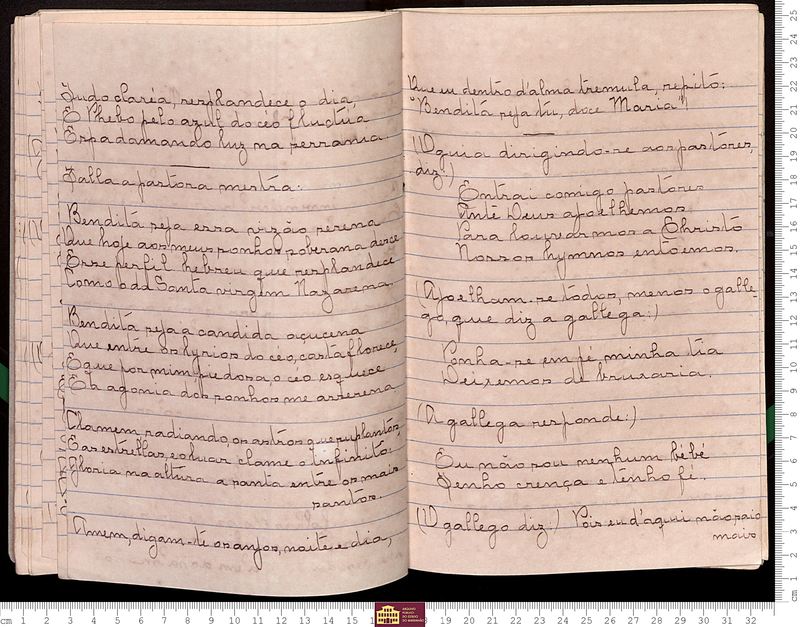 Tudo claréa, resplandece o dia,
E Phebo pelo azul do céo fluctúa
Espadamando luz na serrania.
Falla a pastora mestra:
Bemditá seja essa vizão serena
Que hoje aos meus sonhos soberana desce
Esse perfil hebreu que resplandece
Como o da Santa virgem Nazarena.
Bemditá seja a candida açucena
Que entre os lyrios do céo, casta floresce,
E que por mim piedosa o céo esquece
E a agonia dos sonhos me asserena
Clamem radiando, os astros que
E as estrellas, e o luar clame o Infinitó:
Gloria na altura a santa entre os mais
santos.
Amem, digam-te os anjos, noite e dia,
Que eu dentro d'alma tremula, repitó:
"Bemditá seja tu, doce Maria"!
(O guia dirigindo-se aos pastores,
diz:)
Entrai comigo pastores
Ante Deus ajoelhemos
Para louvarmos a Christó
Nossos hymnos entoemos.
(Ajoelham-se todos, menos o galle-
go, que diz a gallega:)
Ponha-se em pé, minha tia
Deixemos de bruxaria.
(A gallega responde:)
Eu não sou nenhum bébé
Tenho crença e tenho fé.
(O gallego diz:) Pois eu d'aqui não saio
mais
cm 1 2 3 4 5 6 7 8 9 10 11 12 13 14 15 16 18 19 20 21 22 23 24 25 26 27 28 29 30 31 32
cm 1 2 3 4 5 6 7 8 9 10 11 12 13 14 15 16 17 18 19 20 21 22 23 24 25
ARQUIVO
PÚBLICO
DO ESTADO
DO MARANHÃO